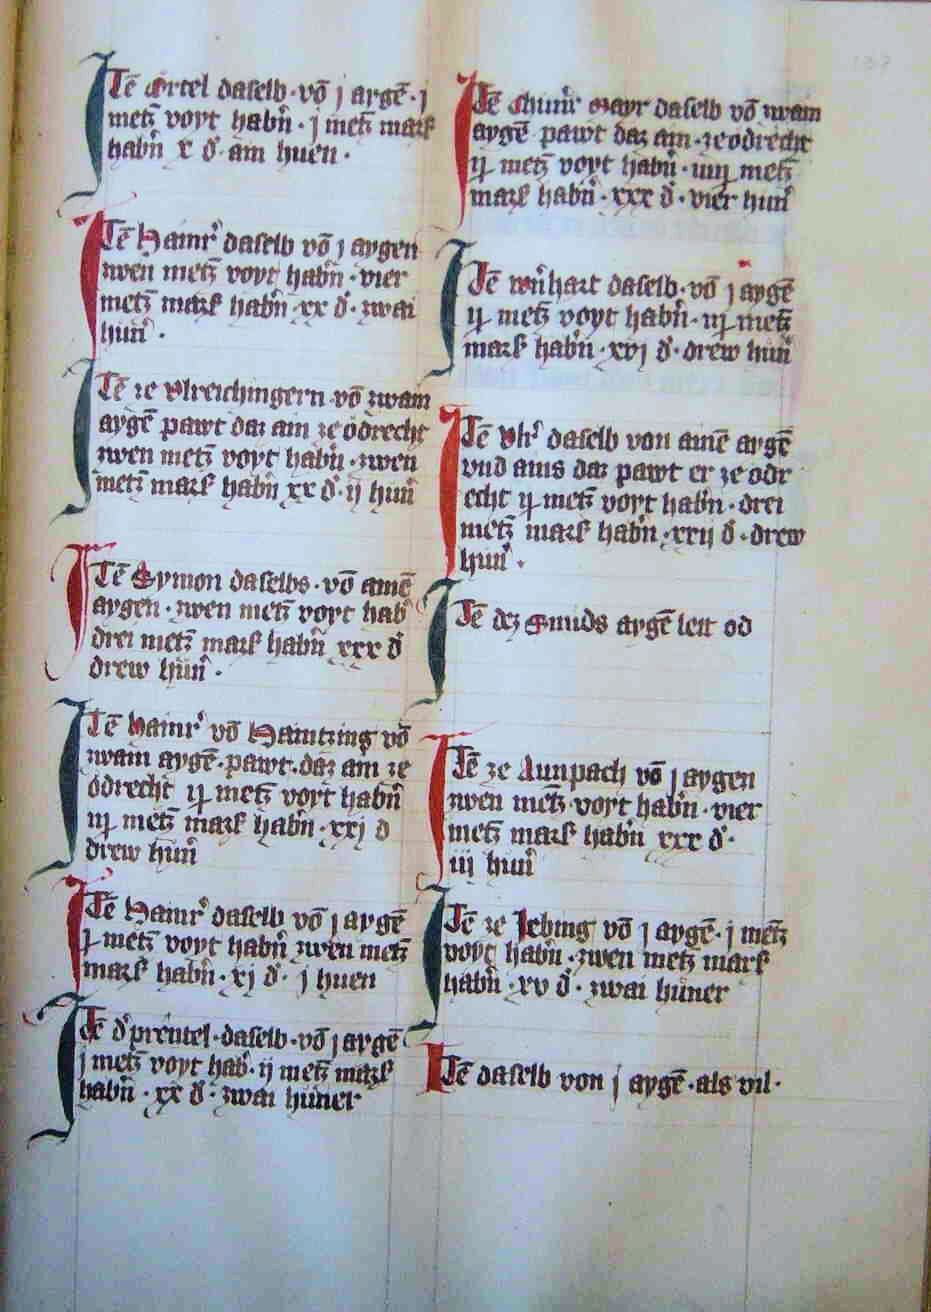 Itē Ortel daselb · vō j aygē · j
metz̄ voyt habn̄ · j metz̄ mark
habn̄ x d̄ · am huen ·
Itē Hainr̄ daselb vō j aygen
zwen metz̄ voyt habn̄ · vier
metz̄ mark habn̄ · xx d̄ · zwai
hun̄ ·
Itē ze vlreichingern · vō zwain
aygē pawt daz ain ze ödrecht
zwen metz̄ voyt habn̄ · zwen
metz̄ mark habn̄ xx d̄ · ij hun̄
Itē Symon daselbs · vō ainē
aygen · zwen metz̄ voyt hab̄
drei metz̄ mark habn̄ xxx d̄
drew hün̄ ·
Itē hainr̄ vō Haintzing vō
zwain aygē · pawt · daz ain ze
ödrecht ij metz̄ voyt habn̄
iij metz̄ mark habn̄ · xxj d
drew hün̄
Itē Hainr̄ daselb vō j aygē
j metz̄ voyt habn̄ zwen metz̄
mark habn̄ · xj d̄ · j huen
Itē d̄ prēntel · daselb · vō j aygē
j metz̄ voyt hab̄ · ij metz̄ mark
habn̄ · xx d̄ · zwai hüner
Itē Chunr̄ Mayr daselb vō zwain
aygē pawt daz ain · ze ödrecht
ij metz̄ voyt habn̄ · iiij metz̄
mark habn̄ · xxx d̄ · vier hun̄
Itē daselb · vō j aygē
ij metz̄ voyt habn̄ · iij metz̄
mark habn̄ · xvj d̄ · drew hün̄
Itē vlr̄ daselb von ainē aygē
vnd ains daz pawt er ze ödr
echt ij metz̄ voyt habn̄ · drei
metz̄ mark habn̄ · xxij d̄ · drew
hün̄ ·
Itē dez Smids aygē leit öd
Itē ze Aunpach vō j aygen
zwen metz̄ · voyt habn̄ · vier
metz̄ mark habn̄ xxx d̄ ·
iij hün̄
Itē ze Jebing vō j aygē · j metz̄
voyt habn̄ · zwen metz̄ mark
habn̄ · xv d̄ · zwai hüner
Itē daselb von j aygē · als vil ·